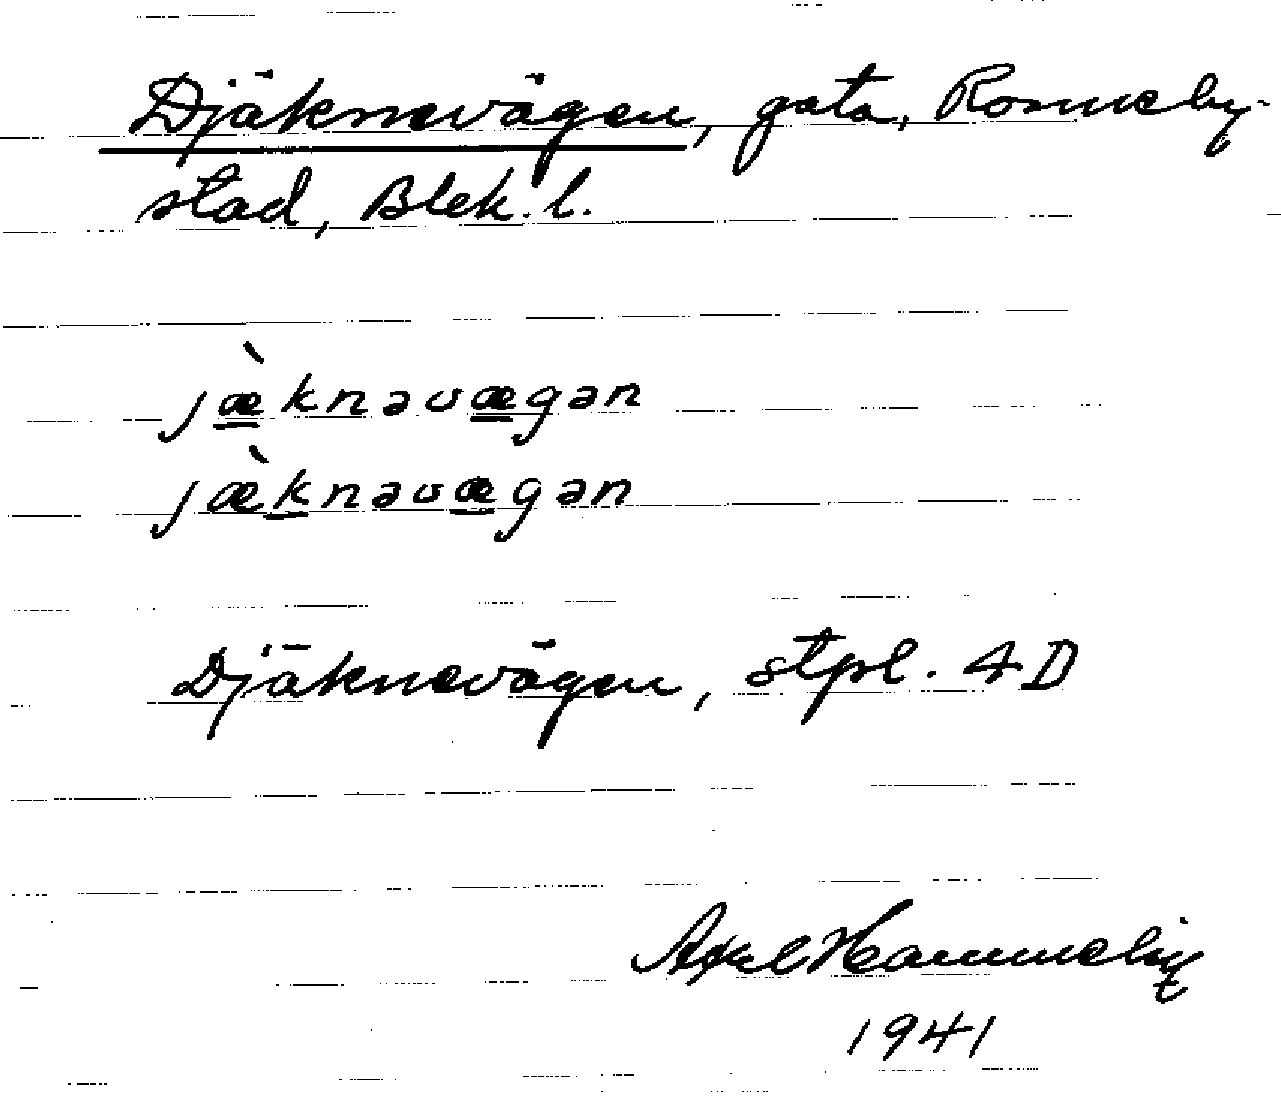 Djäknevägen, gata, Ronneby-
stad, Blek. l.
jæ̀knəvægən
jæ̀knəvægən
Djäknevägen, stpl. 4D
Axel Hammelin
1941